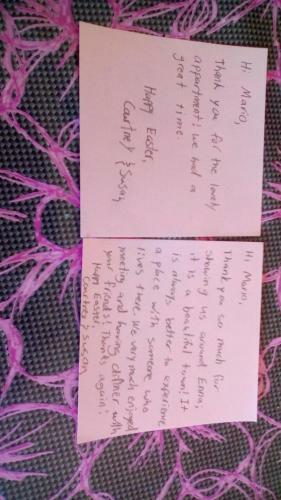 Hi Mario,
Thank you for the lovely
appartment! We had a
great time.
Happy Easter,
Courtney & Susan
Hi Mario,
Thank you so much for
showing us around Enna;
it is a beautiful town! It
is always better to experience
a place with someone who
lives there. We very much enjoyed
meeting and having dinner with
your friends! Thanks again!
Happy Easter
Courtney & Susan